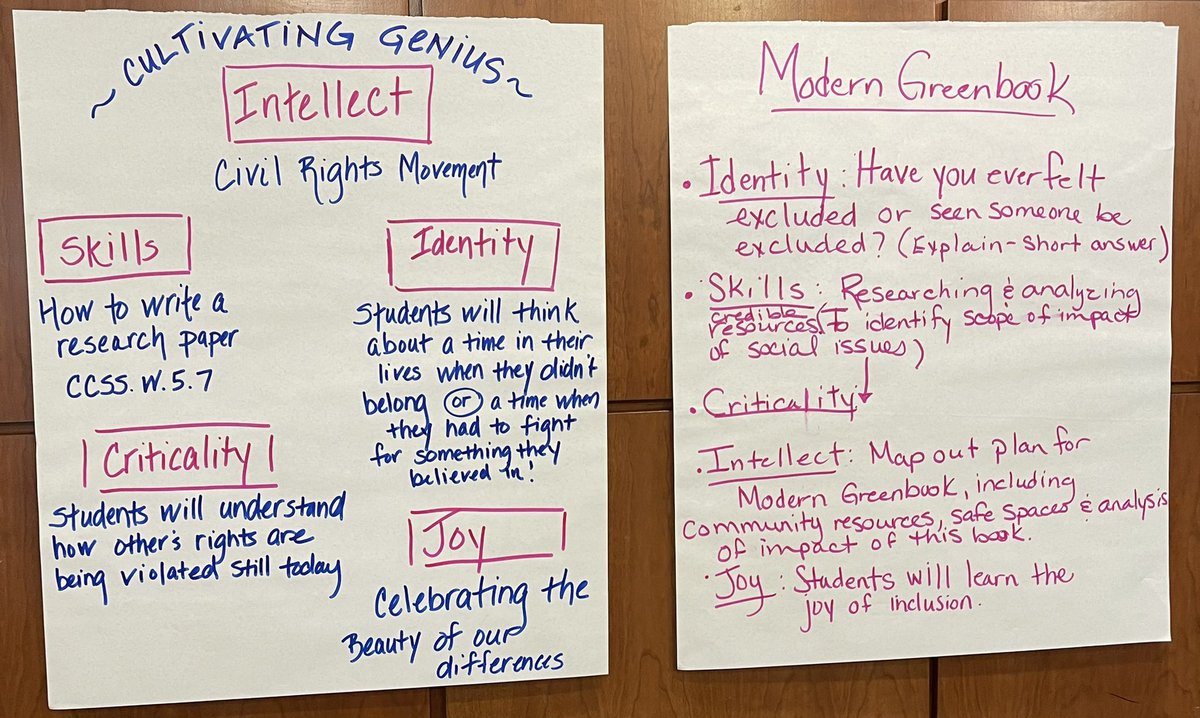 ~ CULTIVATING GENIUS ~
Intellect
Civil Rights Movement
Skills
How to write a
research paper
CCSS.W.5.7
Identity
Students will think
about a time in their
lives when they didn't
belong or a time when
they had to fight
for something they
believed in!
Criticality
Students will understand
how other's rights are
being violated still today
Joy
Celebrating the
Beauty of our
differences
Modern Greenbook
• Identity: Have you ever felt
excluded or seen someone be
excluded? (Explain-short answer)
• Skills: Researching & analyzing
credible
resources (to identify scope of impact
of social issues)
• Criticality
• Intellect: Map out plan for
Modern Greenbook, including
Community resources, safe spaces & analysis
of impact of this book.
• Joy: Students will learn the
joy of inclusion.